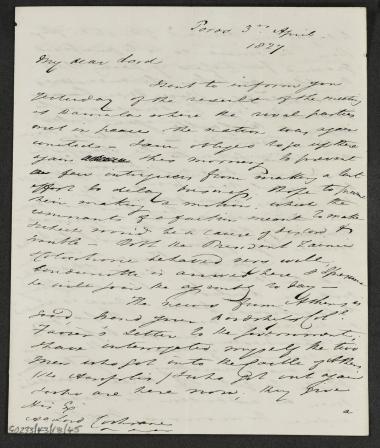 Poros 3rd April
1827
My dear Lord
I sent to inform you
yesterday of the result of the meeting
at Damala where the rival parties
met in peace the nation was again
united. I am obliged to go up there
again this morning to prevent
a few intriguers from making a last
effort to delay business I hope to prevent
their making a motion, which the
remnants of a faction meant to make
& which would be a cause of discord &
trouble — Both the President
behaved very well.
is arrived here I
he will join the assembly to day —
The news from Athens is
good I send your Lordship Col.
letter to the government.
I have interrogated myself the two
men who got into the castle of Athens
the Acropolis / & who got out again
& who are here now, they give
a
His Ex
Lord Cochrane
CO233/43/18/45